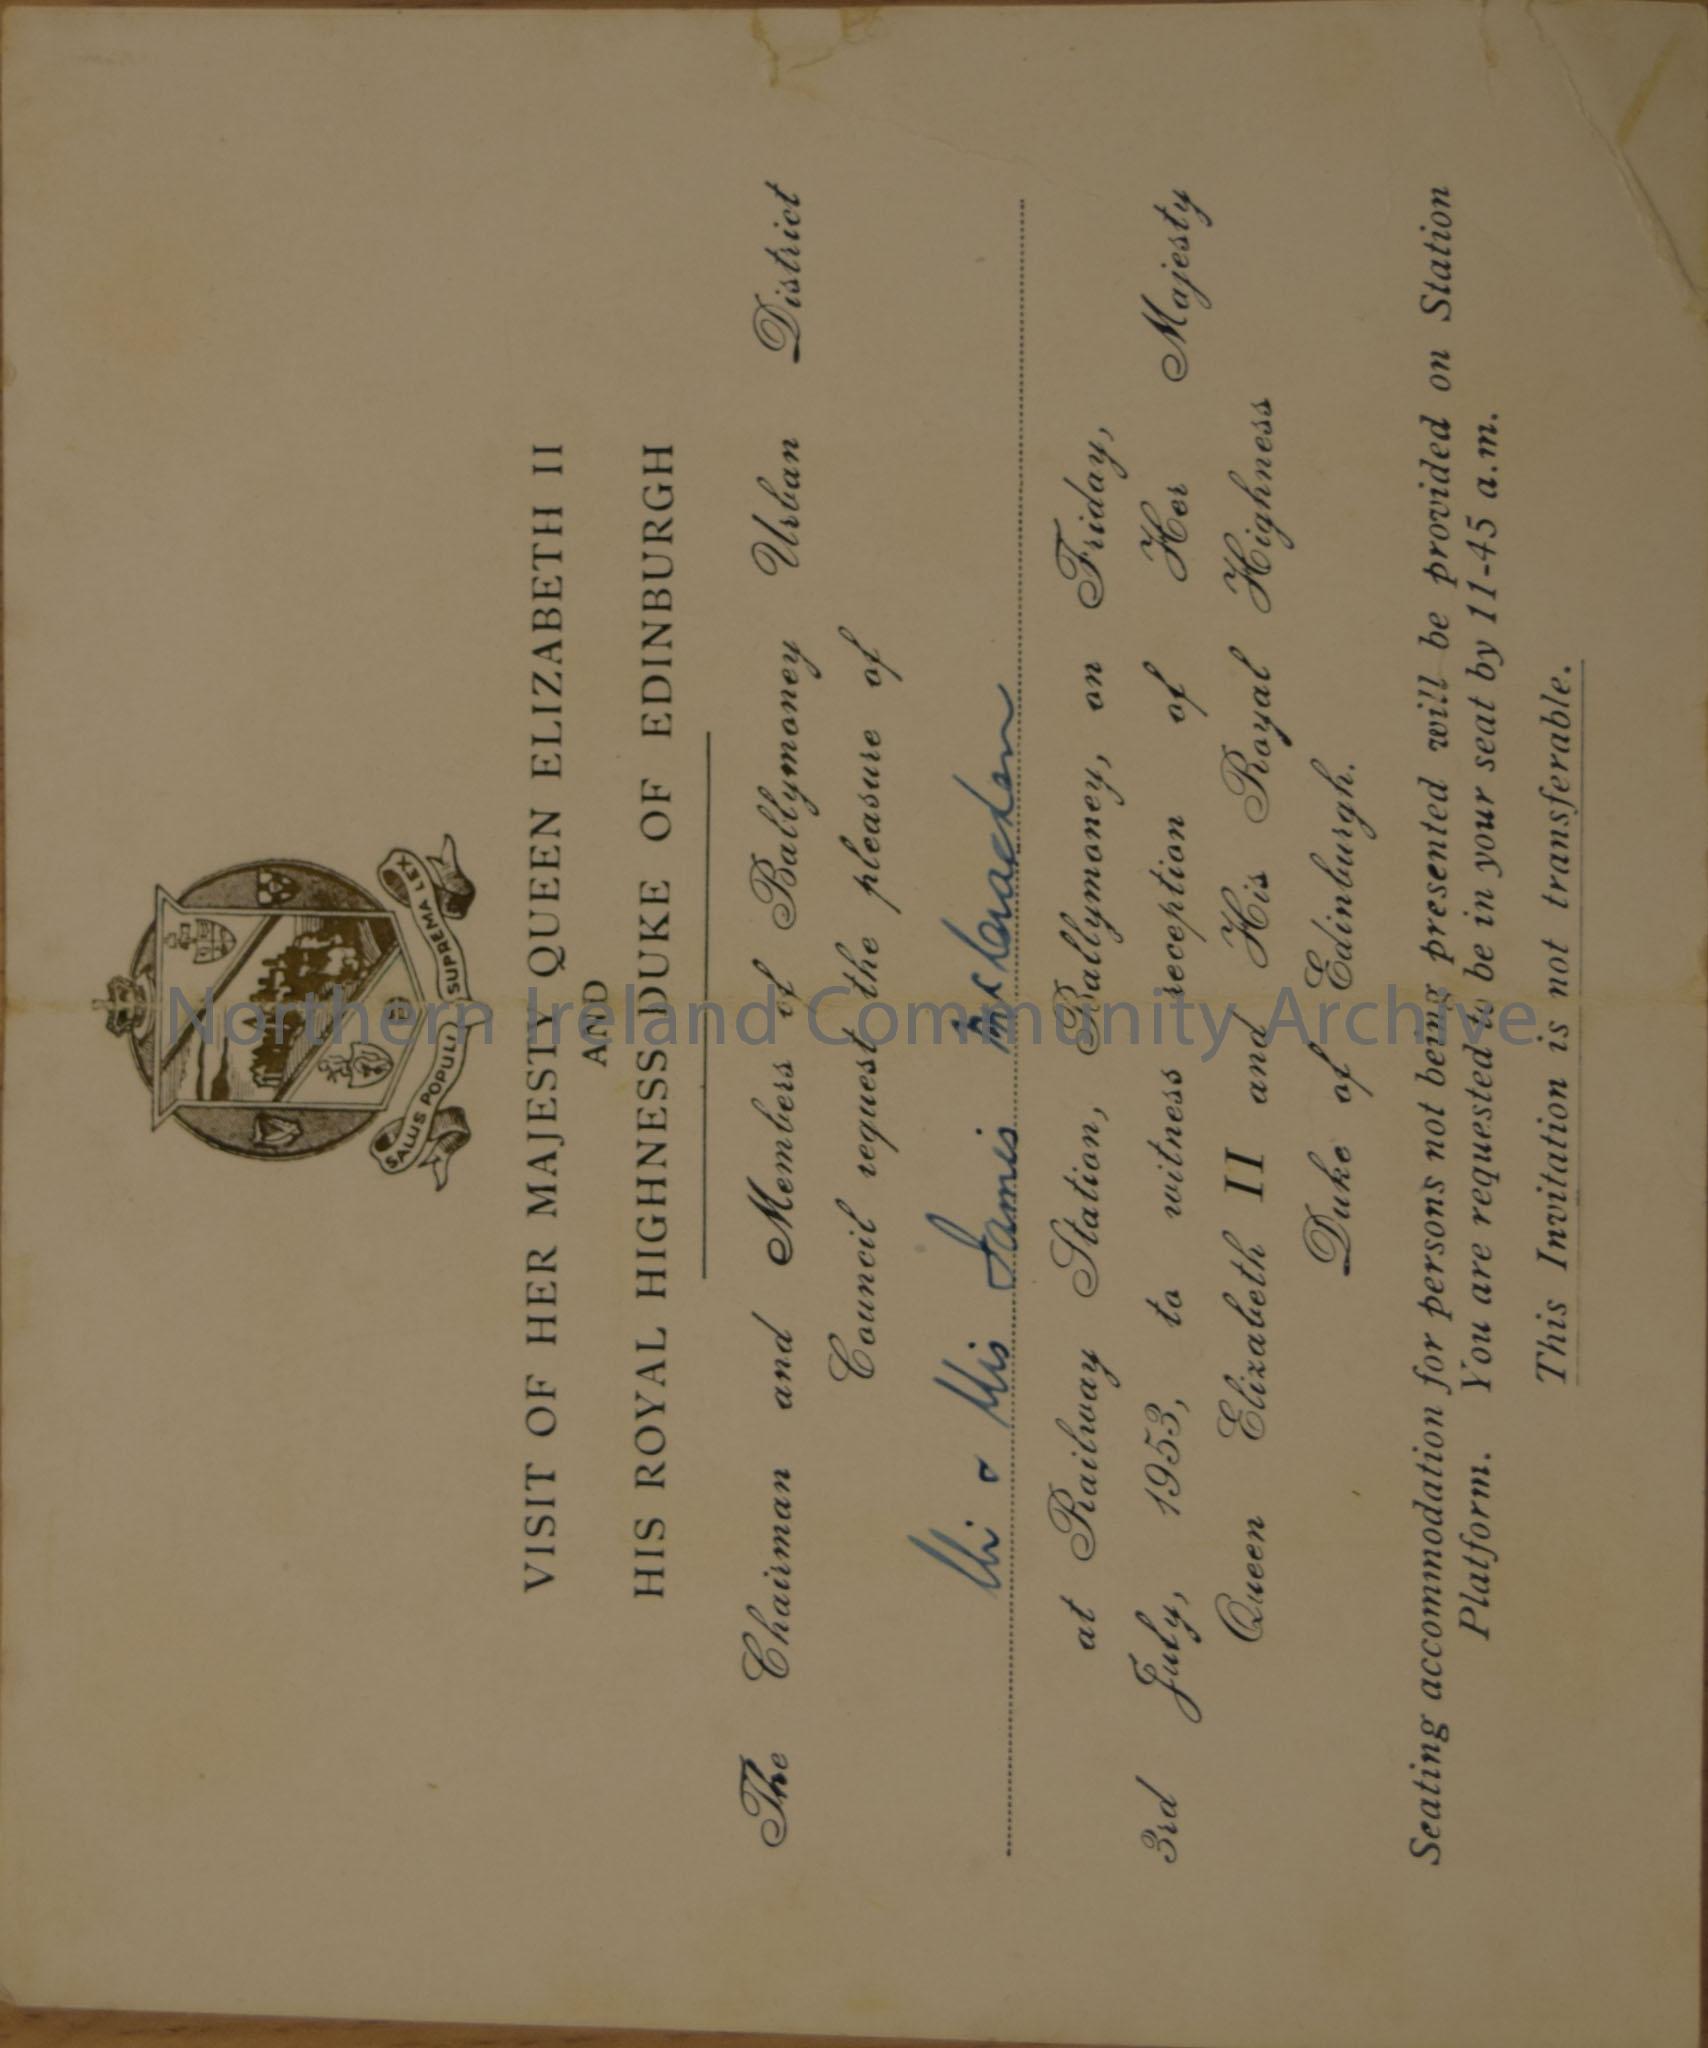 SALUS POPULI SUPREMA LEX
VISIT OF HER MAJESTY QUEEN ELIZABETH II
AND
HIS ROYAL HIGHNESS DUKE OF EDINBURGH
The Chairman and Members of Ballymoney Urban District
Council request the pleasure of
Mr & Mrs James McCracken
at Railway Station, Ballymoney, on Friday,
3rd July, 1953, to witness reception of Her Majesty
Queen Elizabeth II and His Royal Highness
Duke of Edinburgh.
Seating accommodation for persons not being presented will be provided on Station
Platform. You are requested to be in your seat by 11-45 a.m.
This Invitation is not transferable.
Northern Ireland Community Archive